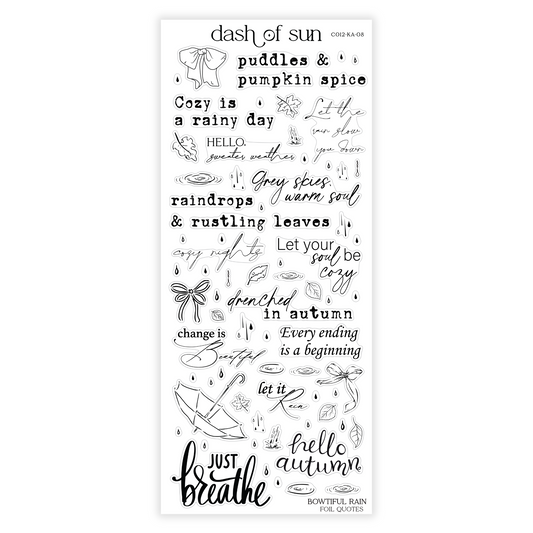 dash of sun
C012-KA-08
puddles &
pumpkin spice
Cozy is
a rainy day
Let the
rain slow
you down
HELLO,
sweater weather
Grey skies,
warm soul
raindrops
& rustling leaves
cozy nights
Let your
soul be
cozy
drenched
in autumn
change is
Beautiful
Every ending
is a beginning
let it
Rain
JUST
breathe
hello
autumn
BOWTIFUL RAIN
FOIL QUOTES